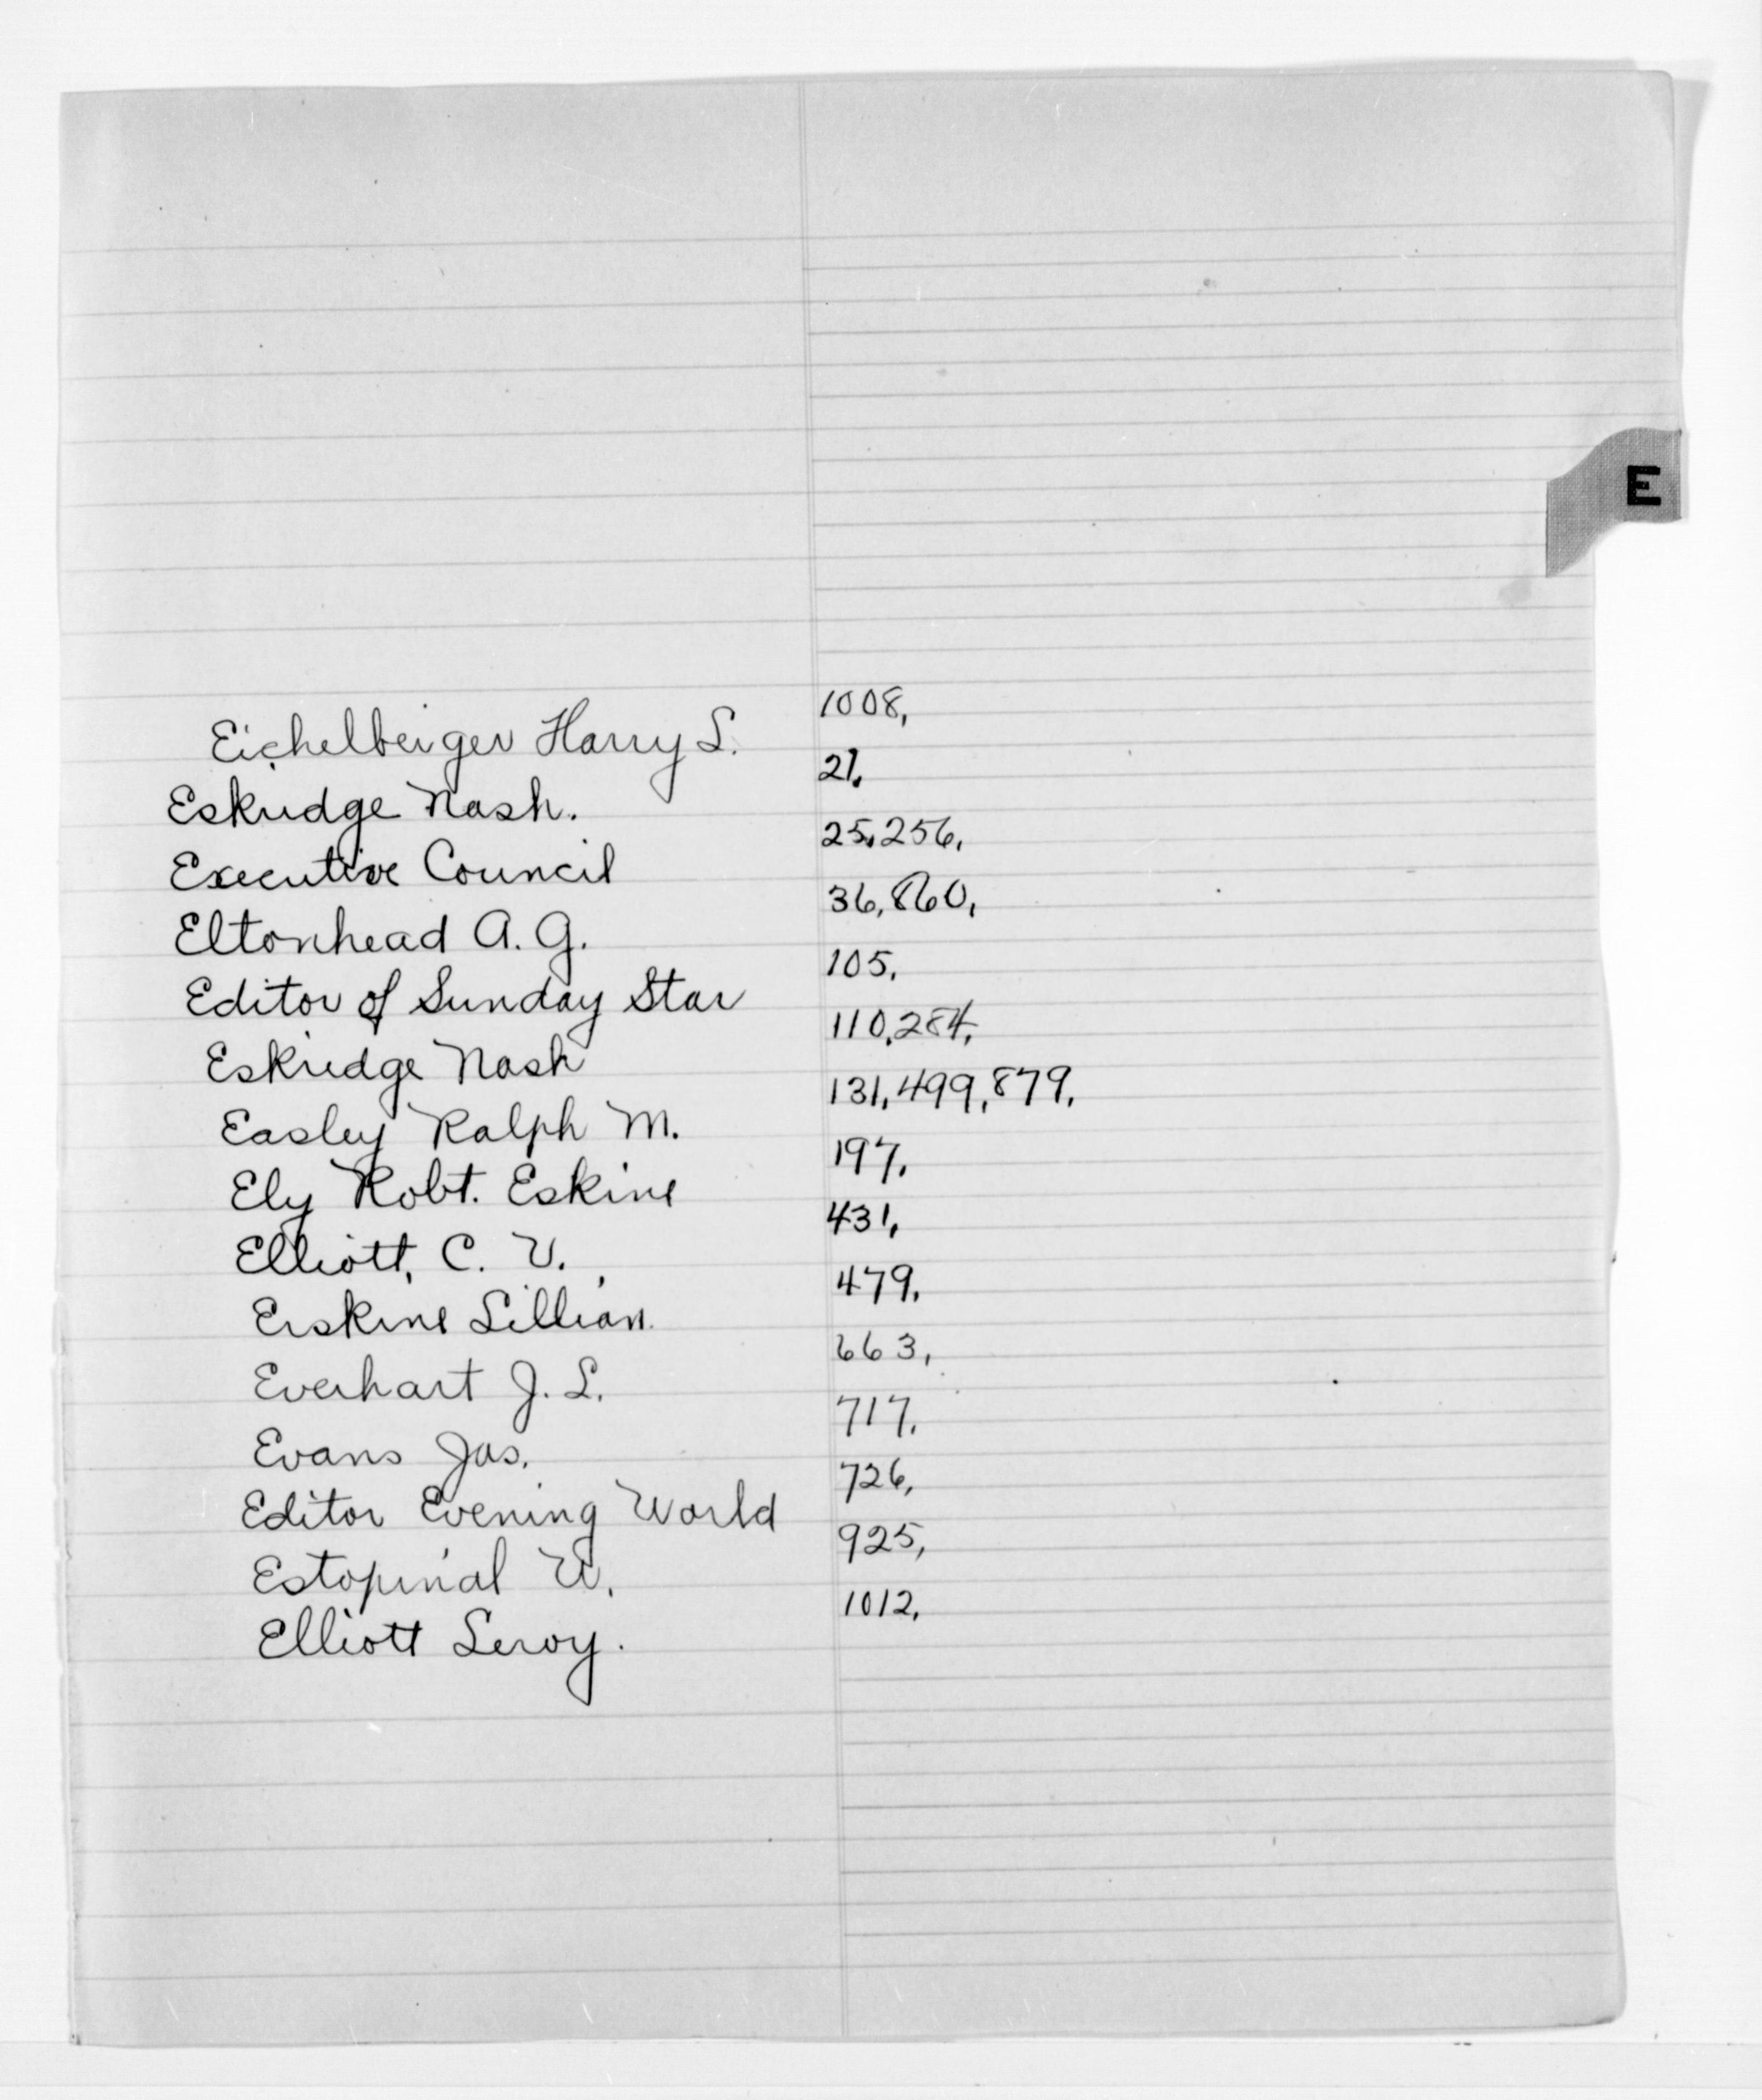 E
Eichelberger Harry L. 1008,
Eskridge Nash. 21,
Executive Council 25,256,
Eltonhead A. G. 36,860,
Editor of Sunday Star 105,
Eskridge Nash 110,284,
Easley Ralph M. 131,499,879,
Ely Robt. Eskine 197,
Elliott, C. V. 431,
Erskine Lillian. 479,
Everhart J. L. 663,
Evans Jas. 717,
Editor Evening World 726,
Estopinal W. 925,
Elliott Leroy. 1012,